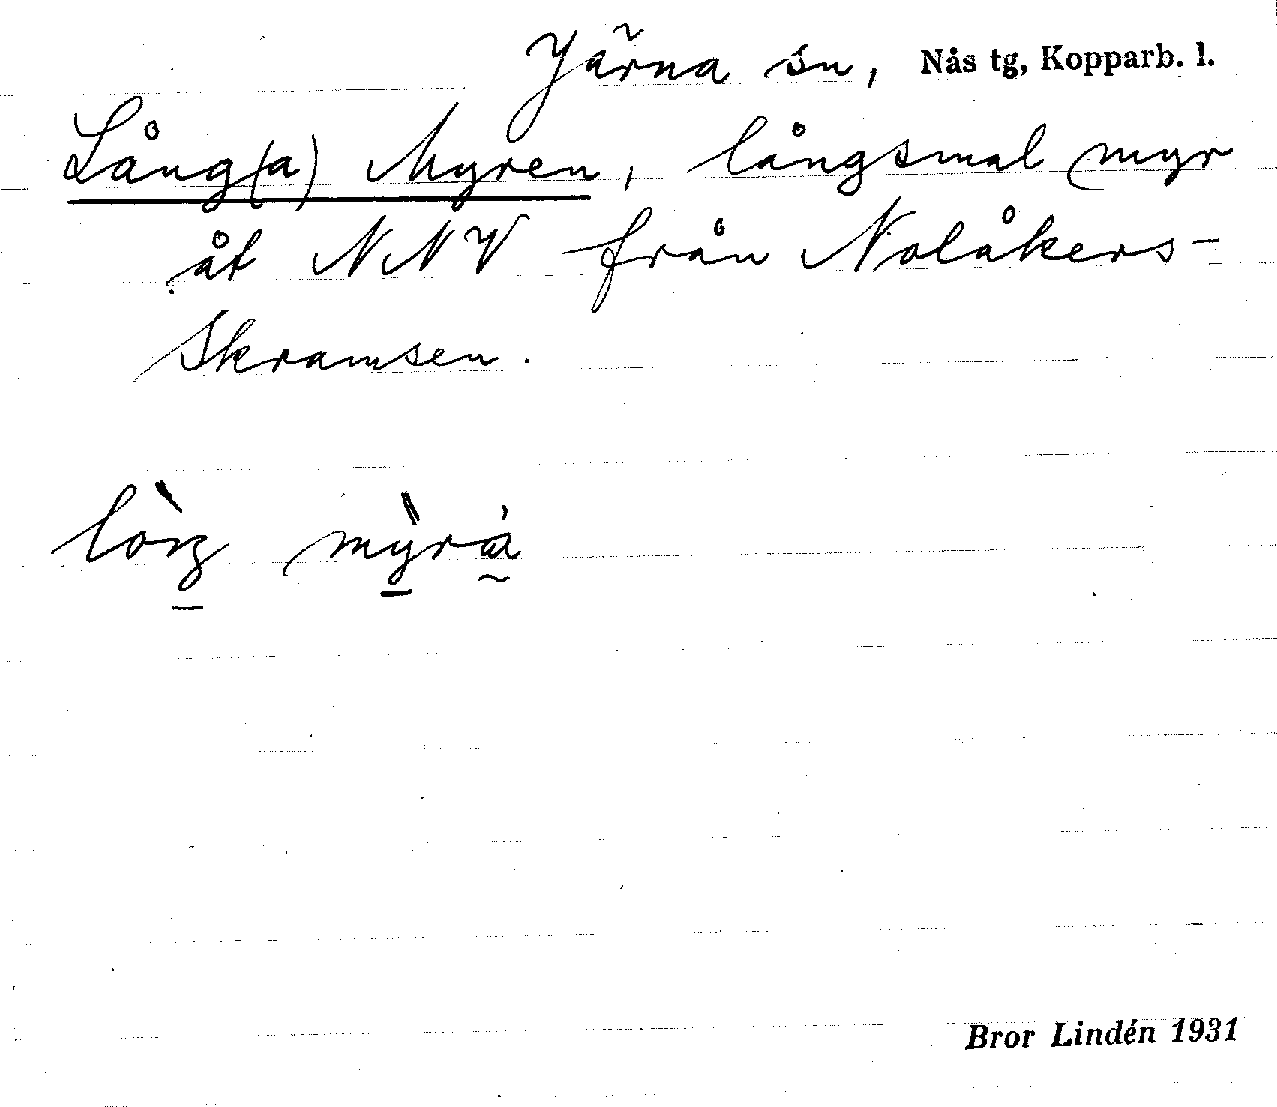 Järna sn, Nås tg, Kopparb. l.
Lång(a) Myren, långsmal myr
åt NNV från Nolåkers-
Skramsen.
lòŋ myrà
Bror Lindén 1931